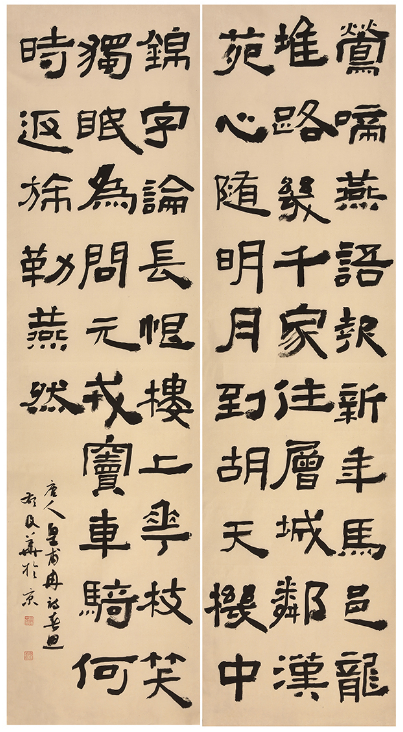 鶯啼燕語報新年馬邑龍
堆路幾千家住層城鄰漢
苑心随明月到胡天機中
錦字論長恨樓上華枝笑
獨眠為問元戎竇車騎何
時返旆勒燕然
唐人皇甫冉詩春思
華於京